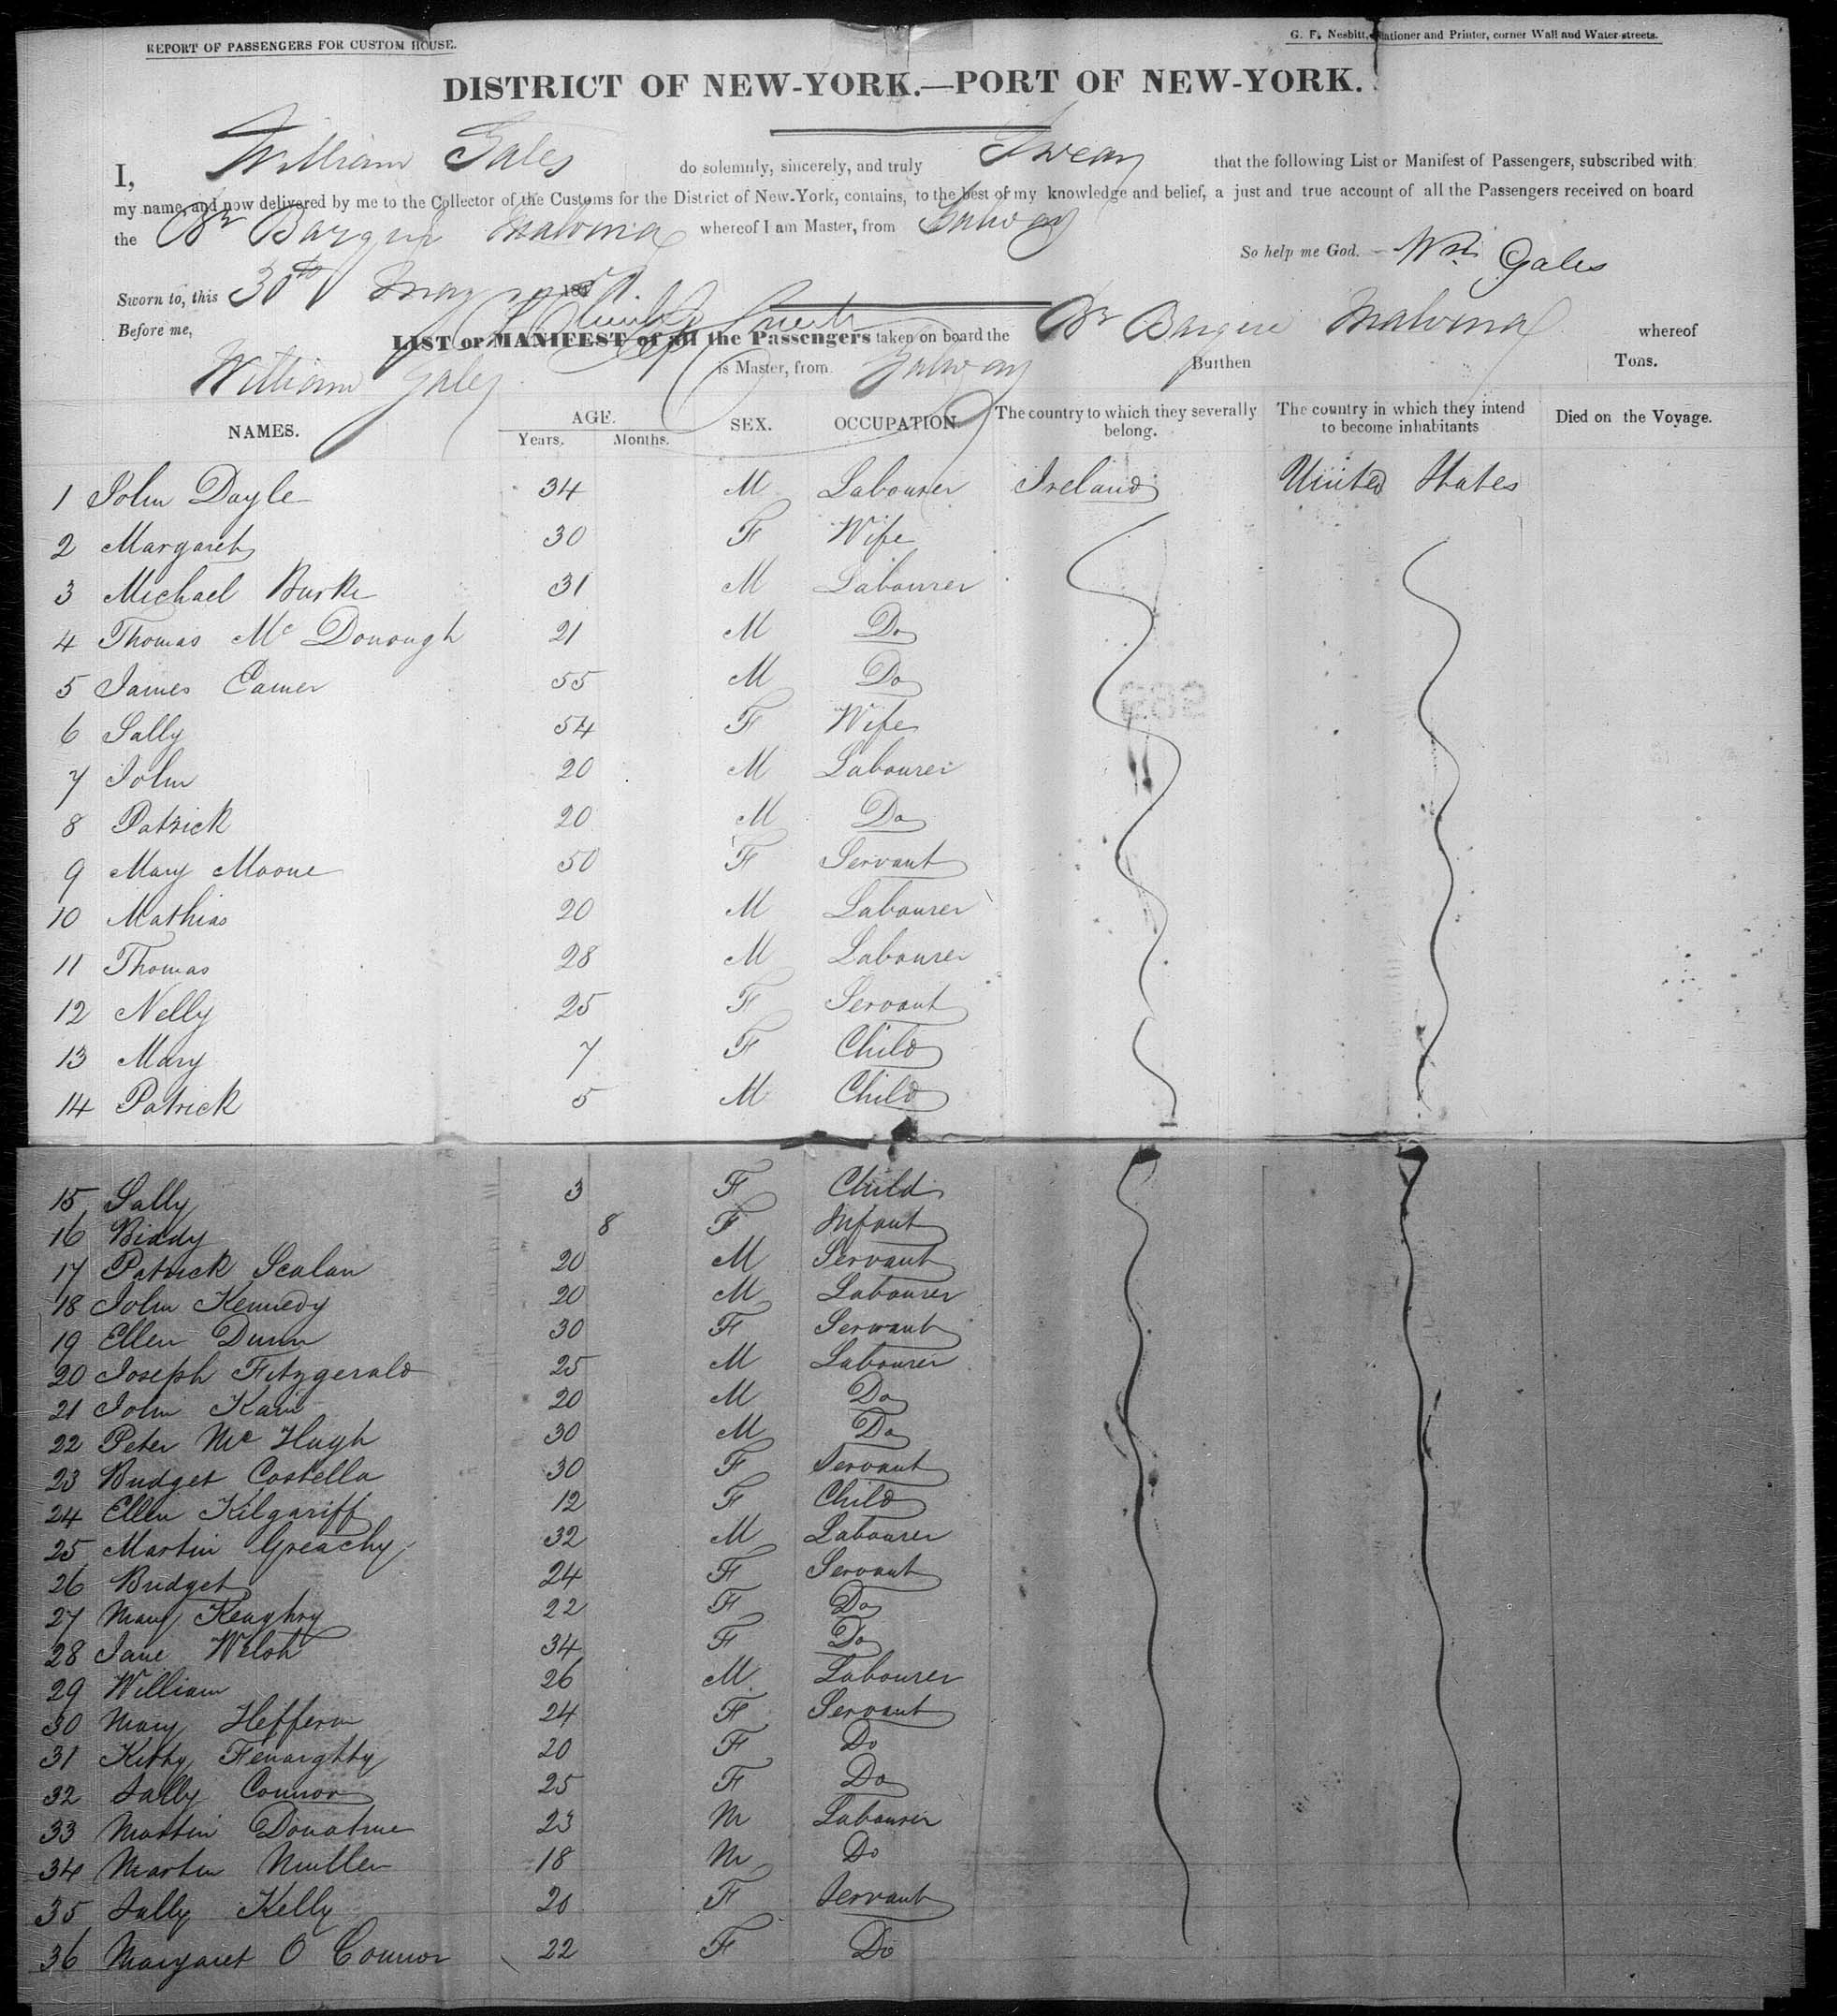 REPORT OF PASSENGERS FOR CUSTOM HOUSE.
G. F. Nesbitt, Stationer and Printer, corner Wall and Water-streets.
DISTRICT OF NEW-YORK.—PORT OF NEW-YORK.
I, William Gales do solemnly, sincerely, and truly Swear that the following List or Manifest of Passengers, subscribed with
my name, and now delivered by me to the Collector of the Customs for the District of New-York, contains, to the best of my knowledge and belief, a just and true account of all the Passengers received on board
the Br Barque Malvina whereof I am Master, from Galway
So help me God. Wm Gales
Sworn to, this 30th May 18
Before me,
LIST or MANIFEST of all the Passengers taken on board the Br Barque Malvina whereof
William Gales is Master, from Galway Burthen Tons.
NAMES. AGE. SEX. OCCUPATION. The country to which they severally belong. The country in which they intend to become inhabitants Died on the Voyage.
Years. Months.
1 John Doyle 34 M Labourer Ireland United States
2 Margaret 30 F Wife
3 Michael Burke 31 M Labourer
4 Thomas Mc Donough 21 M Do
5 James Eamer 55 M Do
6 Sally 54 F Wife
7 John 20 M Labourer
8 Patrick 20 M Do
9 Mary Moone 50 F Servant
10 Mathias 20 M Labourer
11 Thomas 28 M Labourer
12 Nelly 25 F Servant
13 Mary 7 F Child
14 Patrick 5 M Child
15 Sally 3 F Child
16 Biddy 8 F Infant
17 Patrick Scalan 20 M Servant
18 John Kennedy 20 M Labourer
19 Ellen Dunn 30 F Servant
20 Joseph Fitzgerald 25 M Labourer
21 John Kain 20 M Do
22 Peter Mc Hugh 30 M Do
23 Bridget Costella 30 F Servant
24 Ellen Kilgariff 12 F Child
25 Martin Greachy 32 M Labourer
26 Bridget 24 F Servant
27 Mary Keaghry 22 F Do
28 Jane Welsh 34 F Do
29 William 26 M Labourer
30 Mary Heffern 24 F Servant
31 Kitty Fenarghty 20 F Do
32 Sally Connor 25 F Do
33 Martin Donahue 23 M Labourer
34 Martin Mullen 18 M Do
35 Sally Kelly 20 F Servant
36 Margaret O Connor 22 F Do